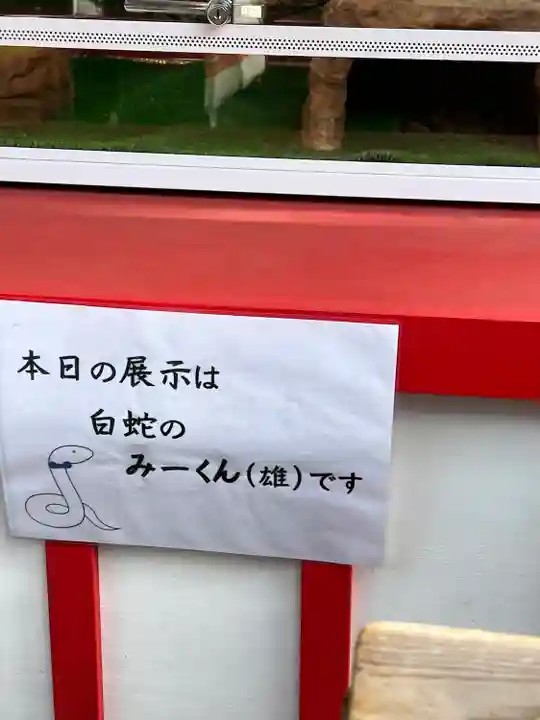 本日の展示は
白蛇の
みーくん(雄)です